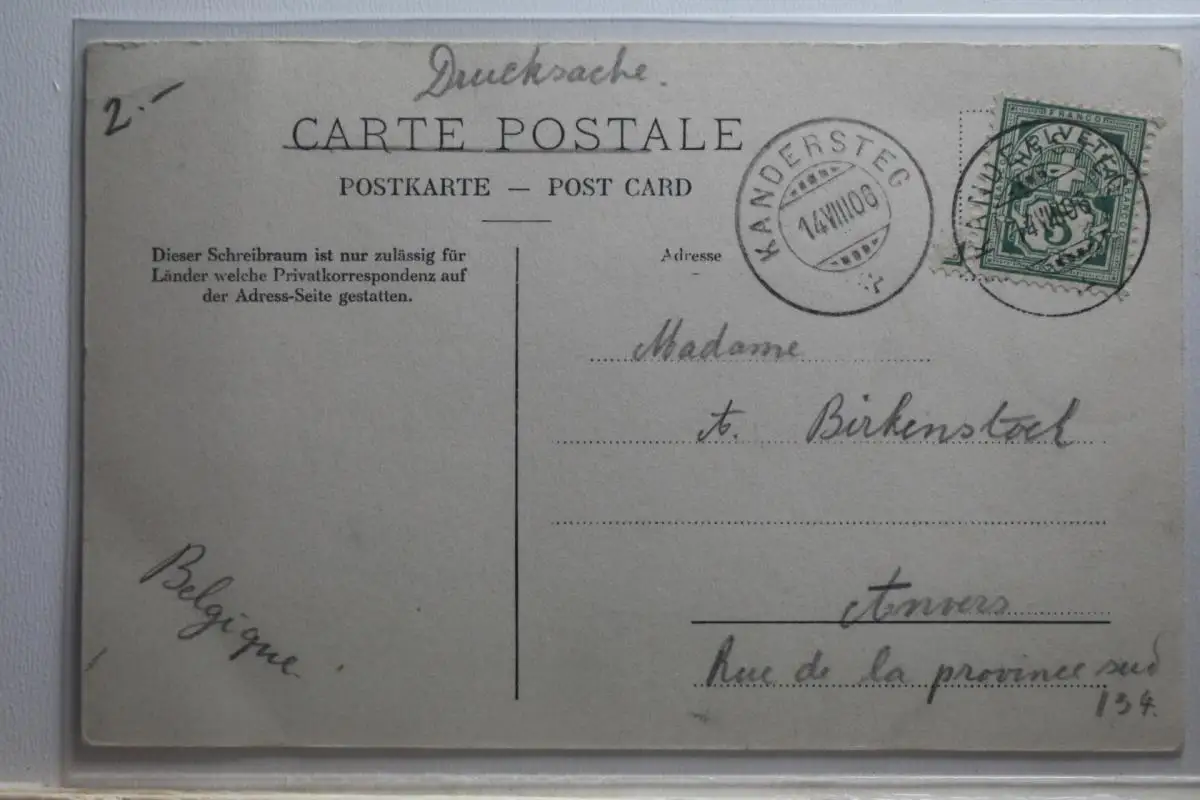 Drucksache.
2.-
CARTE POSTALE
POSTKARTE — POST CARD
KANDERSTEG
14.VIII.06
FRANCO
HELVETIA
5
KANDERSTEG
14.VIII.06
Dieser Schreibraum ist nur zulässig für
Länder welche Privatkorrespondenz auf
der Adress-Seite gestatten.
Adresse
Madame
A. Birkenstock
Anvers
Rue de la province sud
134.
Belgique